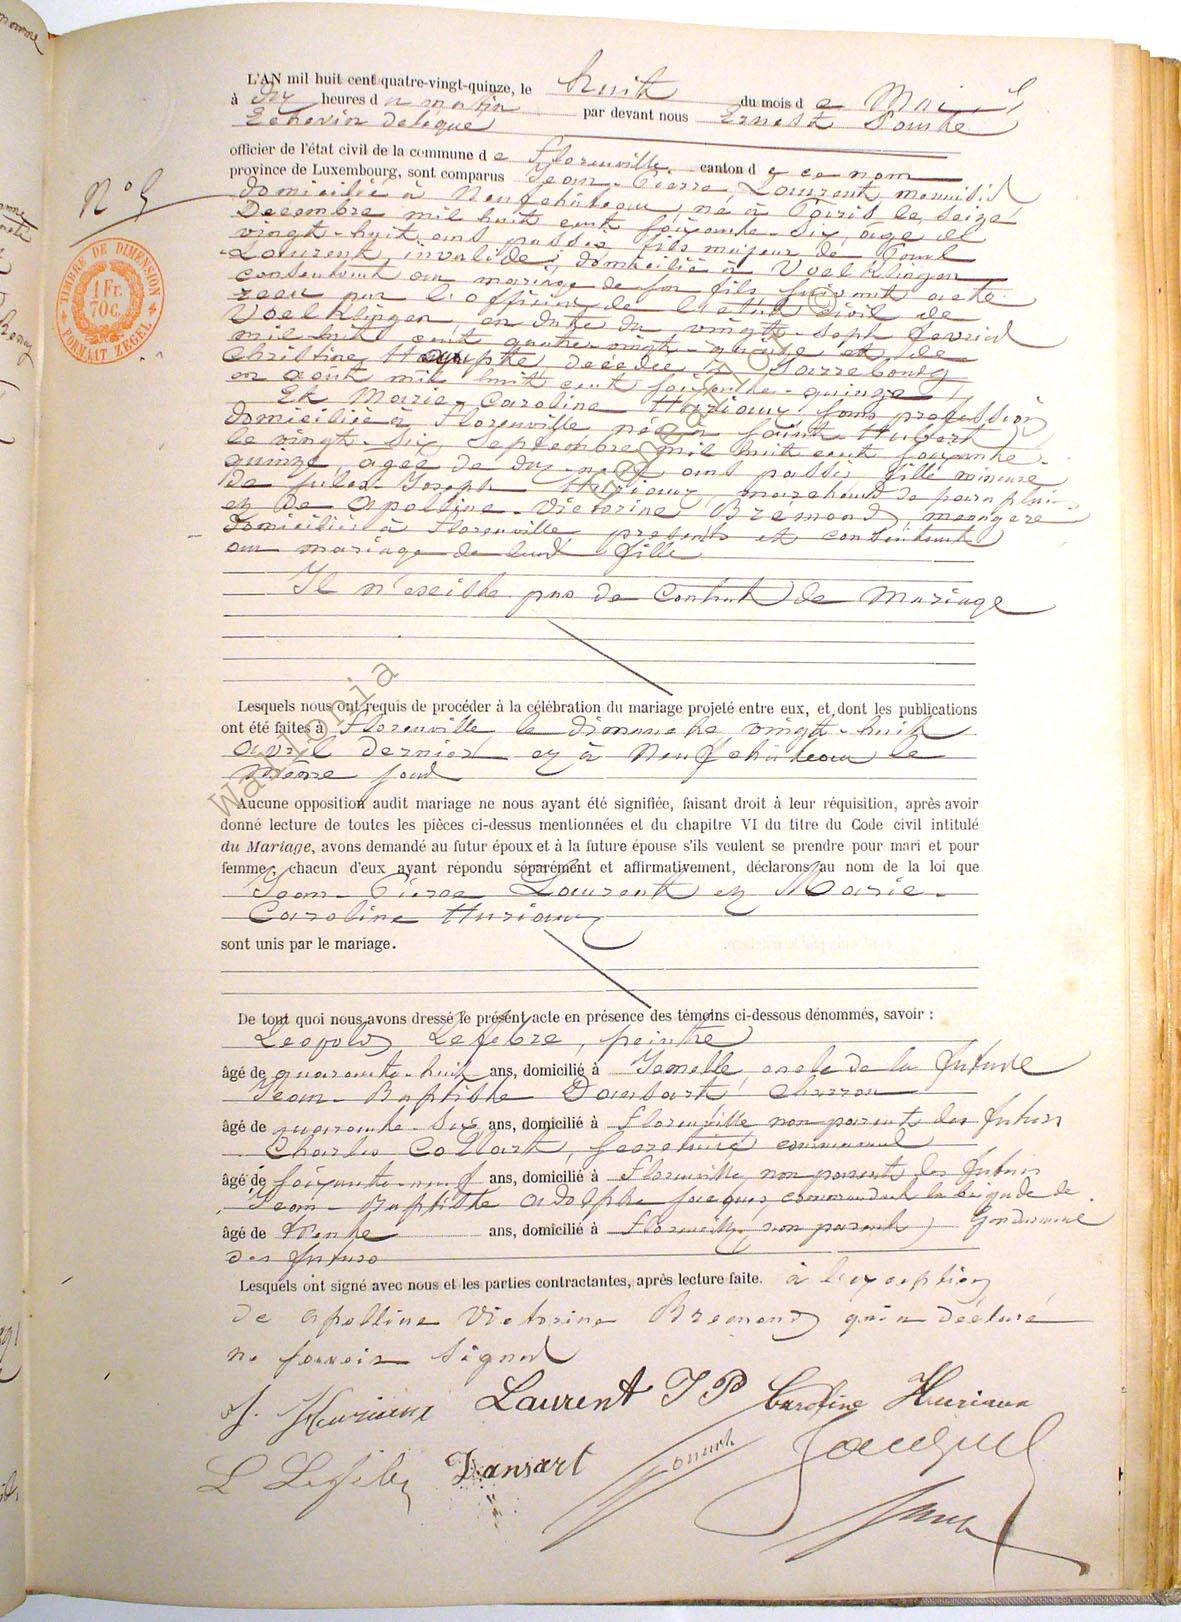 L'AN mil huit cent quatre-vingt-quinze, le huit du mois de Mai
à dix heures du matin par devant nous Ernest
Echevin délégué
officier de l'état civil de la commune de Florenville canton de ce nom
province de Luxembourg, sont comparus Jean-Pierre Laurent, menuisier
N° 5
domicilié à Neufchâteau, né à Paris le seize
Décembre mil huit cent soixante-six, âgé de
vingt-huit ans passés fils majeur de Paul
Laurent, invalide, domicilié à Voelklingen
consentant au mariage de son fils suivant acte
reçu par l'officier de l'état civil de
Voelklingen, en date du vingt-sept février
mil huit cent quatre-vingt-quinze et de
Christine décédée à Sarrebourg
en août mil huit cent soixante-quinze
Et Marie-Caroline Huriaux, sans profession
domiciliée à Florenville née à Saint-Hubert
le vingt-six Septembre mil huit cent soixante-
quinze, âgée de dix-neuf ans passés, fille mineure
de Jules-Joseph Huriaux, marchand de parapluies
et de Apolline-Victorine Brémond, ménagère
domiciliés à Florenville, présents et consentants
au mariage de leur fille
Il n'existe pas de contrat de mariage
TIMBRE DE DIMENSION
1 Fr.
70C.
FORMAAT ZEGEL
Lesquels nous ont requis de procéder à la célébration du mariage projeté entre eux, et dont les publications
ont été faites à Florenville le dimanche vingt-huit
avril dernier et à Neufchâteau le
même jour
Aucune opposition audit mariage ne nous ayant été signifiée, faisant droit à leur réquisition, après avoir
donné lecture de toutes les pièces ci-dessus mentionnées et du chapitre VI du titre du Code civil intitulé
du Mariage, avons demandé au futur époux et à la future épouse s'ils veulent se prendre pour mari et pour
femme; chacun d'eux ayant répondu séparément et affirmativement, déclarons au nom de la loi que
Jean-Pierre Laurent et Marie-
Caroline Huriaux
sont unis par le mariage.
De tout quoi nous avons dressé le présent acte en présence des témoins ci-dessous dénommés, savoir :
Léopold Lefebre, peintre
âgé de quarante-huit ans, domicilié à Jemelle, oncle de la future
Jean-Baptiste Dansart, charron
âgé de quarante-six ans, domicilié à Florenville non parent des futurs
Charles Collart, secrétaire communal
âgé de soixante-neuf ans, domicilié à Florenville, non parent des futurs
Jean-Baptiste Adolphe Jacques, commandant la brigade de
gendarmerie
âgé de trente ans, domicilié à Florenville, non parent
des futurs
Lesquels ont signé avec nous et les parties contractantes, après lecture faite. à l'exception
de Apolline Victorine Bremond qui a déclaré
ne savoir signer
J. Huriaux Laurent J P Caroline Huriaux
L Lefebre Dansart
Wallonia